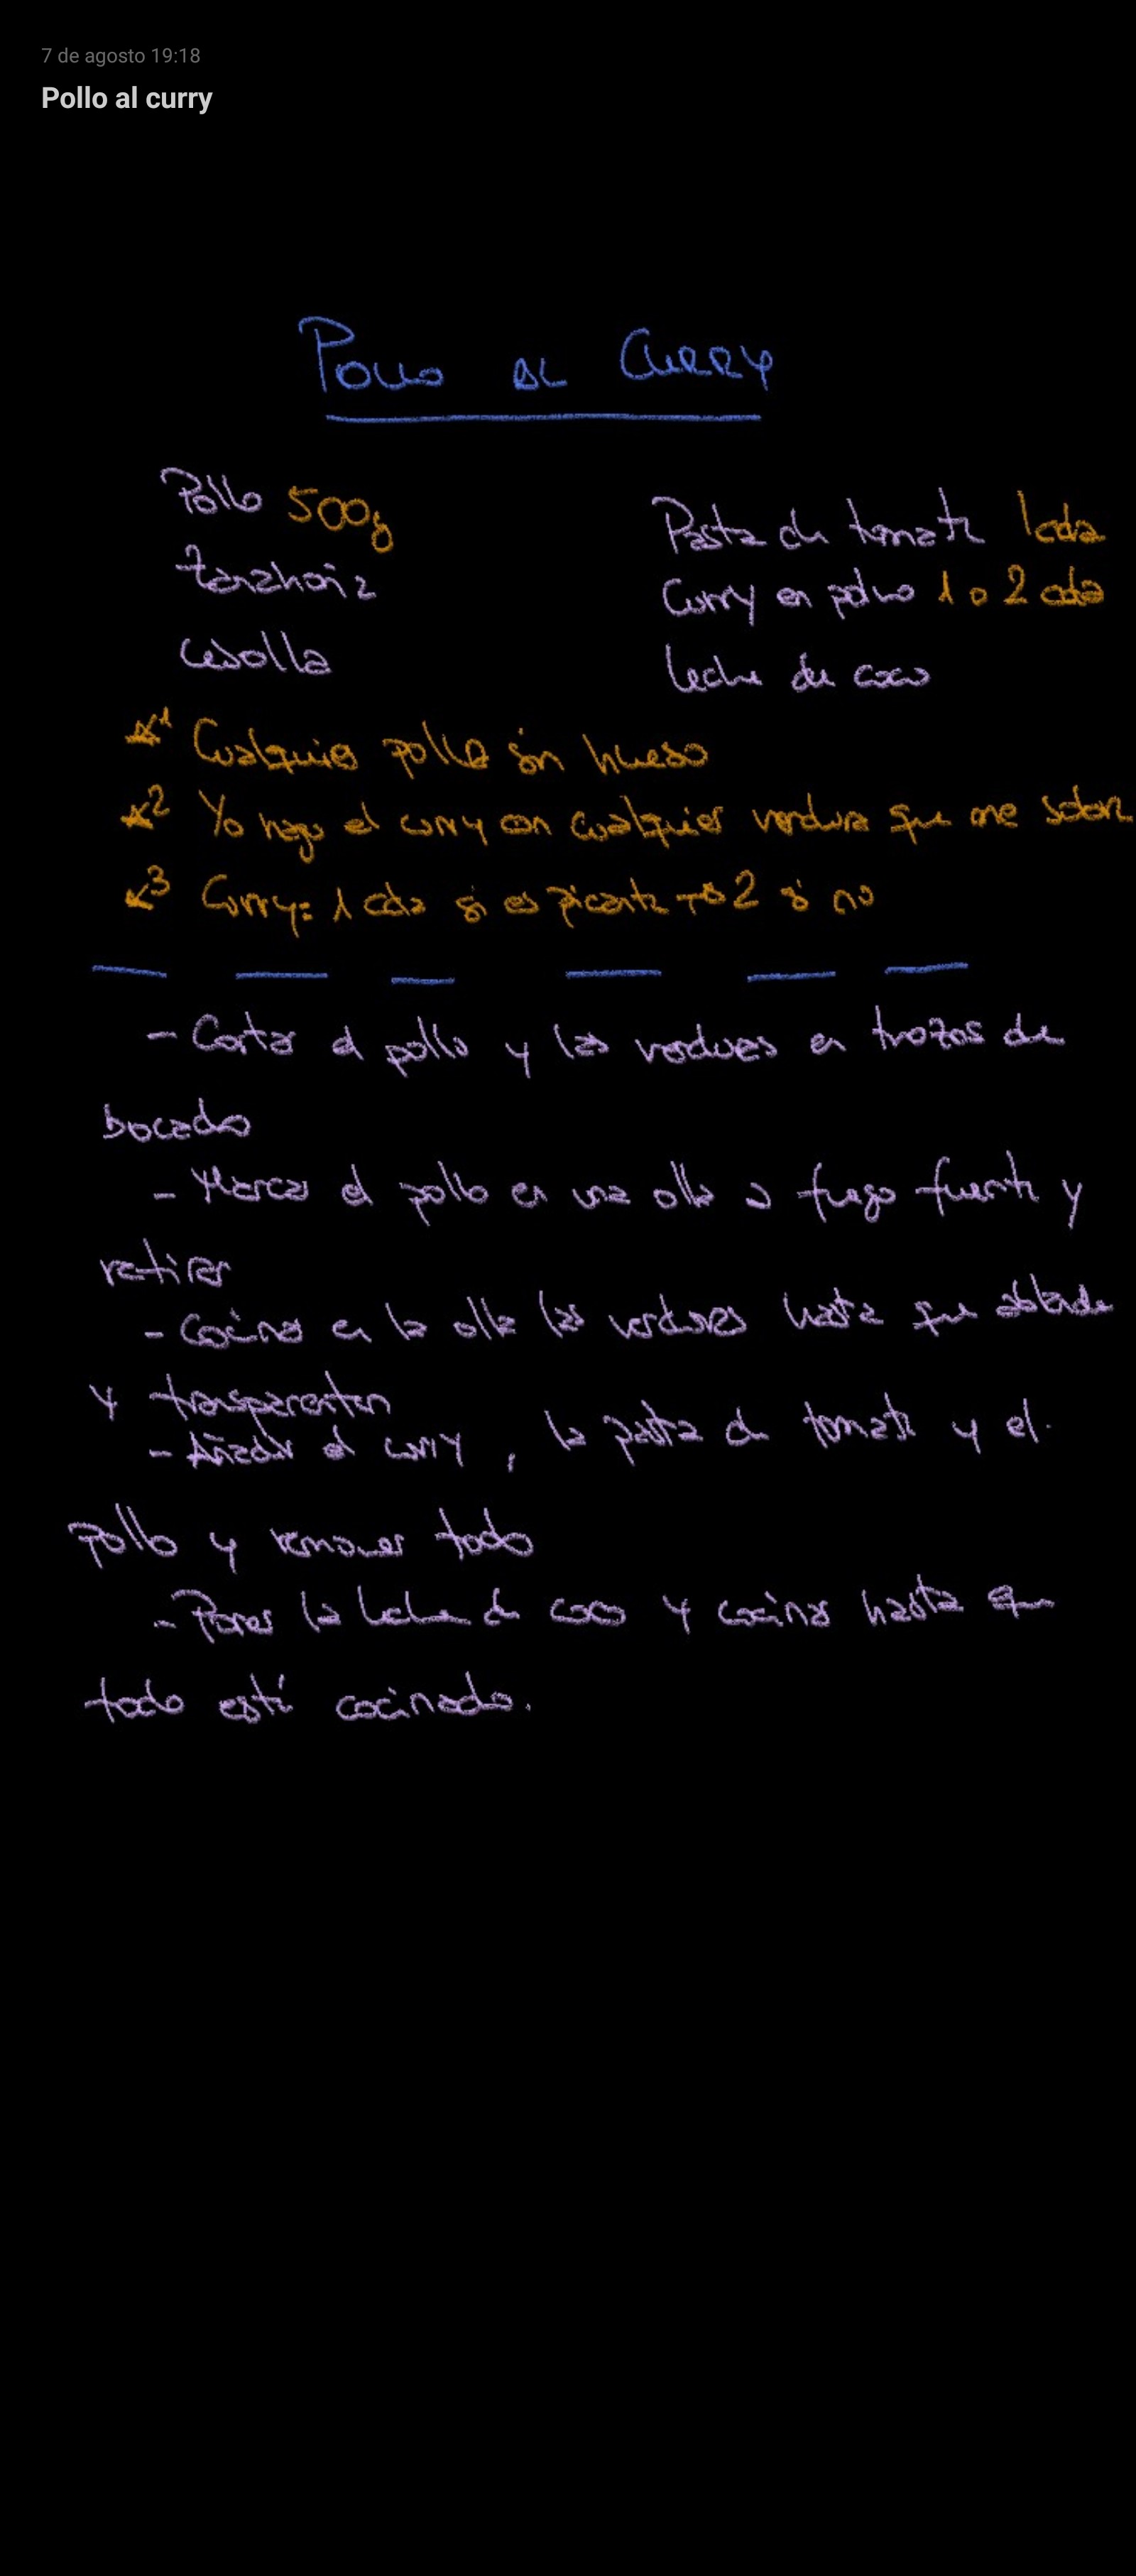 7 de agosto 19:18
Pollo al curry
POLLO AL CURRY
Pollo 500g
Pasta de tomate 1cda
Zanahoria
Curry en polvo 1 o 2 cda
Cebolla
Leche de coco
*1 Cualquier pollo sin hueso
*2 Yo hago el curry con cualquier verdura que me sobre
*3 Curry: 1 cda si es picante → 2 si no
- Cortar el pollo y las verduras en trozos de
bocado
- Marcar el pollo en una olla a fuego fuerte y
retirar
- Cocinar en la olla las verduras hasta que ablande
y transparenten
- Añadir el curry, la pasta de tomate y el
pollo y remover todo
- Poner la leche de coco y cocinar hasta que
todo esté cocinado.